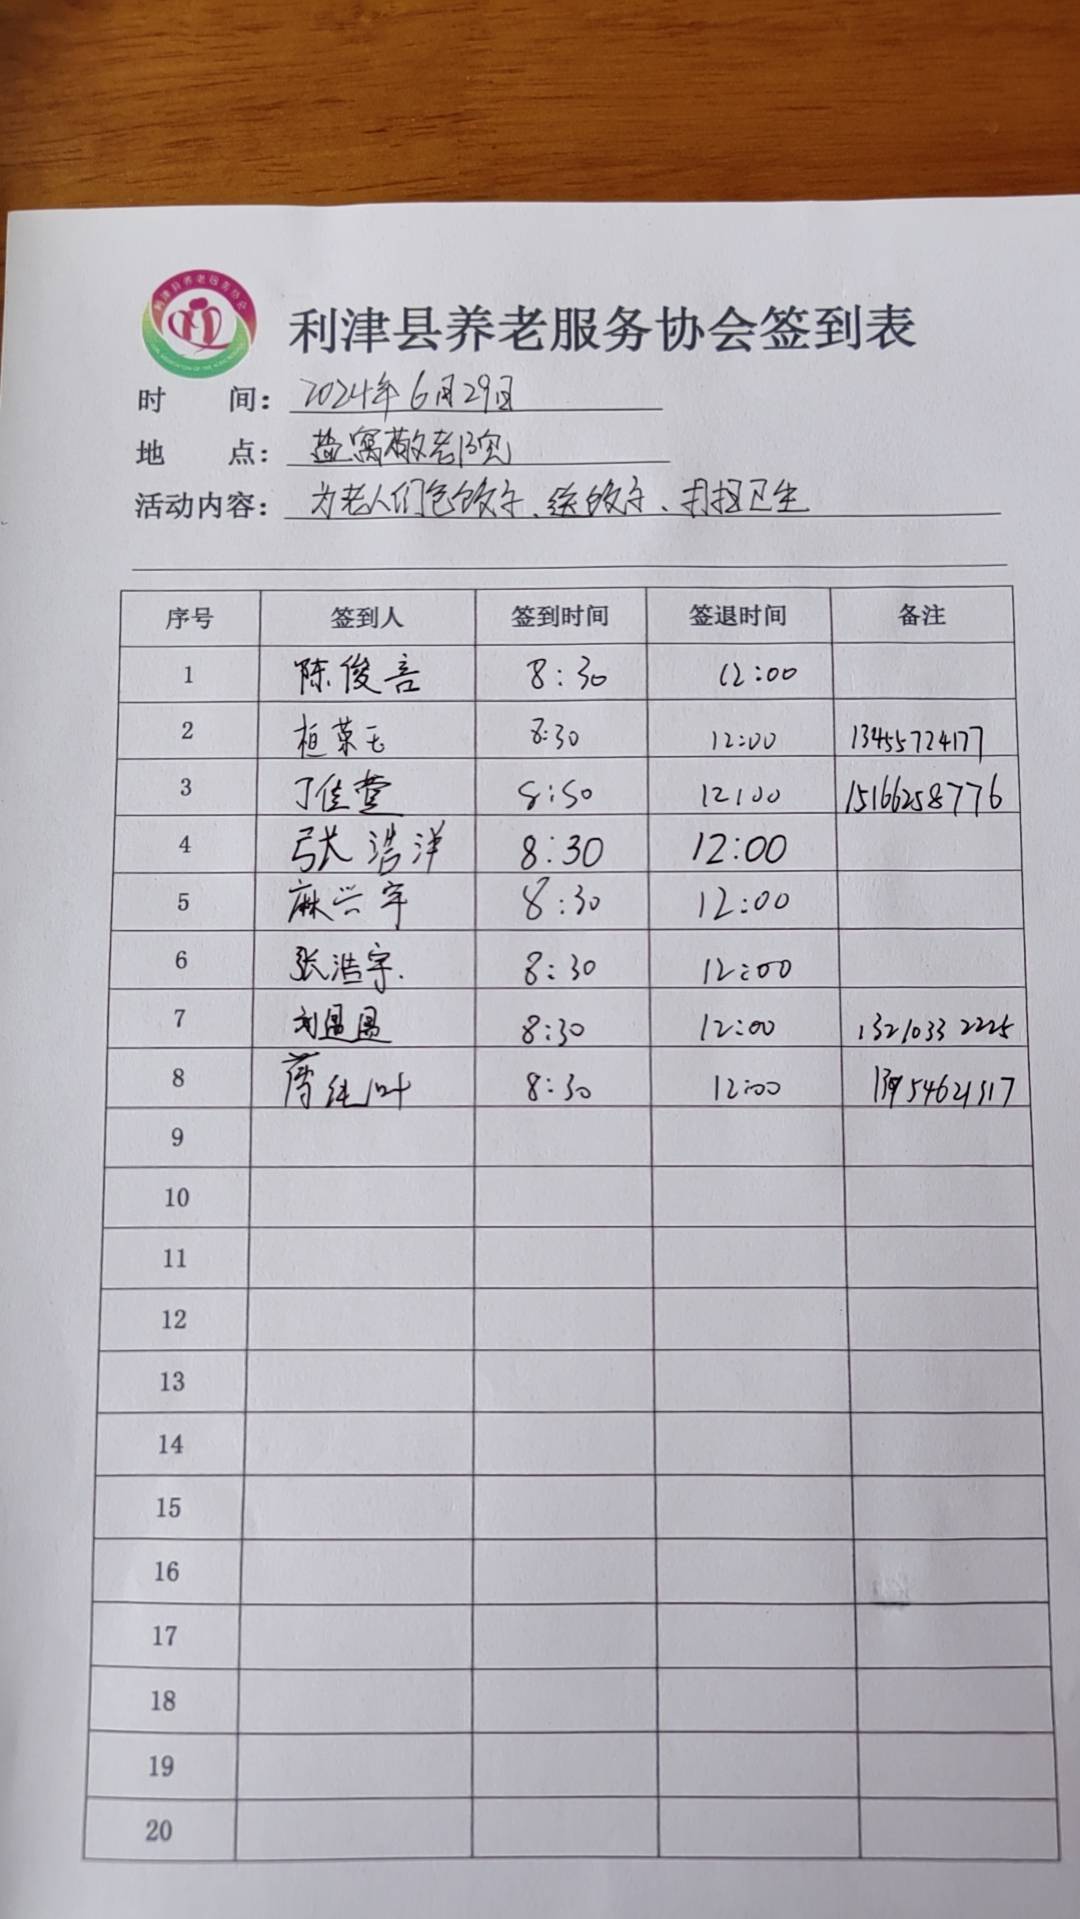 利津县养老服务协会
利津县养老服务协会签到表
时 间：2024年6月29日
地 点：盐窝敬老院
活动内容：为老人们包饺子、送饺子、打扫卫生
序号 签到人 签到时间 签退时间 备注
1 陈俊言 8:30 12:00
2 桓荣玉 8:30 12:00 13455724177
3 丁佳萱 8:50 12:00 15166258776
4 张浩洋 8:30 12:00
5 麻兴宇 8:30 12:00
6 张浩宇. 8:30 12:00
7 8:30 12:00 13210332225
8 8:30 12:00
9
10
11
12
13
14
15
16
17
18
19
20